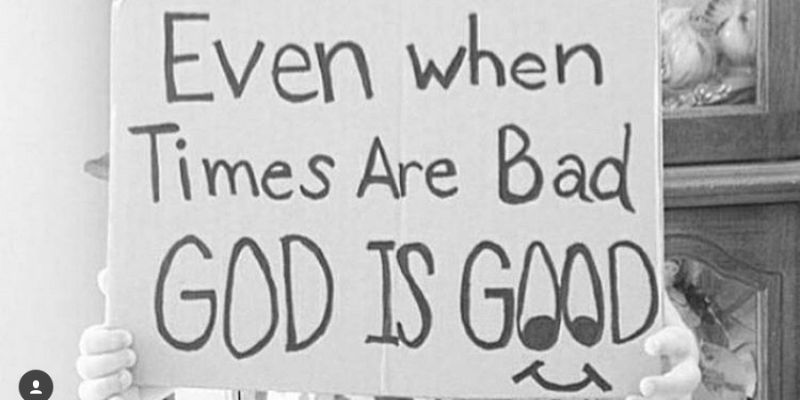 Even when
Times Are Bad
GOD IS GOOD